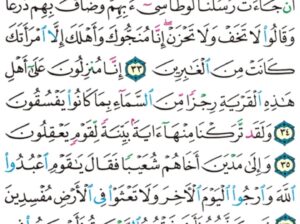 أَن جَآءَتْ رُسُلُنَا لُوطًا سِيٓءَ بِهِمْ وَضَاقَ بِهِمْ ذَرْعًا
وَقَالُوا۟ لَا تَخَفْ وَلَا تَحْزَنْ إِنَّا مُنَجُّوكَ وَأَهْلَكَ إِلَّا ٱمْرَأَتَكَ
كَانَتْ مِنَ ٱلْغَٰبِرِينَ ٣٣ إِنَّا مُنزِلُونَ عَلَىٰٓ أَهْلِ
هَٰذِهِ ٱلْقَرْيَةِ رِجْزًا مِّنَ ٱلسَّمَآءِ بِمَا كَانُوا۟ يَفْسُقُونَ
٣٤ وَلَقَد تَّرَكْنَا مِنْهَآ ءَايَةًۢ بَيِّنَةً لِّقَوْمٍ يَعْقِلُونَ
٣٥ وَإِلَىٰ مَدْيَنَ أَخَاهُمْ شُعَيْبًا فَقَالَ يَٰقَوْمِ ٱعْبُدُوا۟
ٱللَّهَ وَٱرْجُوا۟ ٱلْيَوْمَ ٱلْءَاخِرَ وَلَا تَعْثَوْا۟ فِى ٱلْأَرْضِ مُفْسِدِينَ